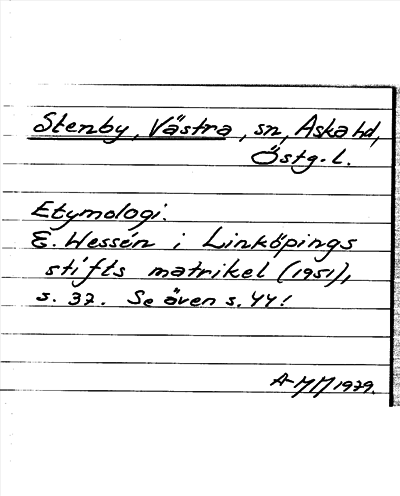 Stenby, Västra, sn, Aska hd,
Östg.l.
Etymologi:
E. Wessén i Linköpings
stifts matrikel (1951),
s. 37. Se även s. 44!
A-MM 1979.